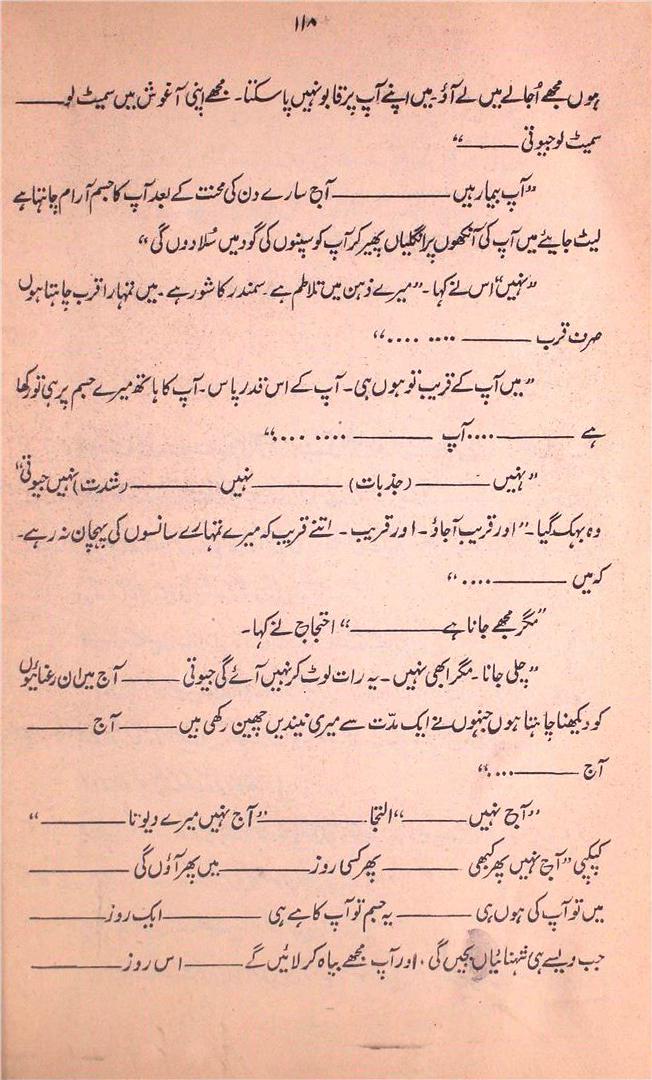 ۱۱۸
ہوں مجھے اُجالے میں لے آؤ۔ میں اپنے آپ پر قابو نہیں پا سکتا۔ مجھے اپنی آغوش میں سمیٹ لو ——
سمیٹ لو جیوتی ——“
”آپ بیمار ہیں —— آج سارے دن کی محنت کے بعد آپ کا جسم آرام چاہتا ہے
لیٹ جایئے میں آپ کی آنکھوں پر انگلیاں پھیر کر آپ کو سپنوں کی گود میں سُلا دوں گی“
”نہیں“ اس نے کہا۔ ”میرے ذہن میں تلاطم ہے۔ سمندر کا شور ہے۔ میں تمہارا قرب چاہتا ہوں
صرف قرب —— .... ....“
”میں آپ کے قریب تو ہوں ہی۔ آپ کے اس قدر پاس۔ آپ کا ہاتھ میرے جسم پر ہی تو رکھا
ہے —— .... آپ —— .... ....“
”نہیں —— (جذبات) —— نہیں —— (شدت) نہیں جیوتی“
وہ بہک گیا۔ ”اور قریب آجاؤ۔ اور قریب۔ اتنے قریب کہ میرے تمہارے سانسوں کی پہچان نہ رہے۔
کہ میں —— ....“
”مگر مجھے جانا ہے ——“ احتجاج نے کہا۔
”چلی جانا۔ مگر ابھی نہیں۔ یہ رات لوٹ کر نہیں آئے گی جیوتی —— آج میں ان رعنائیوں
کو دیکھنا چاہتا ہوں جنہوں نے ایک مدّت سے میری نیندیں چھین رکھی ہیں —— آج ——
آج —— ....“
”آج نہیں ——“ التجا —— ”آج نہیں میرے دیوتا ——“
کپکپی ”آج نہیں پھر کبھی —— پھر کسی روز —— میں پھر آؤں گی ——
میں تو آپ کی ہوں ہی —— یہ جسم تو آپ کا ہے ہی —— ایک روز ——
جب ویسے ہی شہنائیاں بجیں گی، اور آپ مجھے بیاہ کر لائیں گے —— اس روز ——